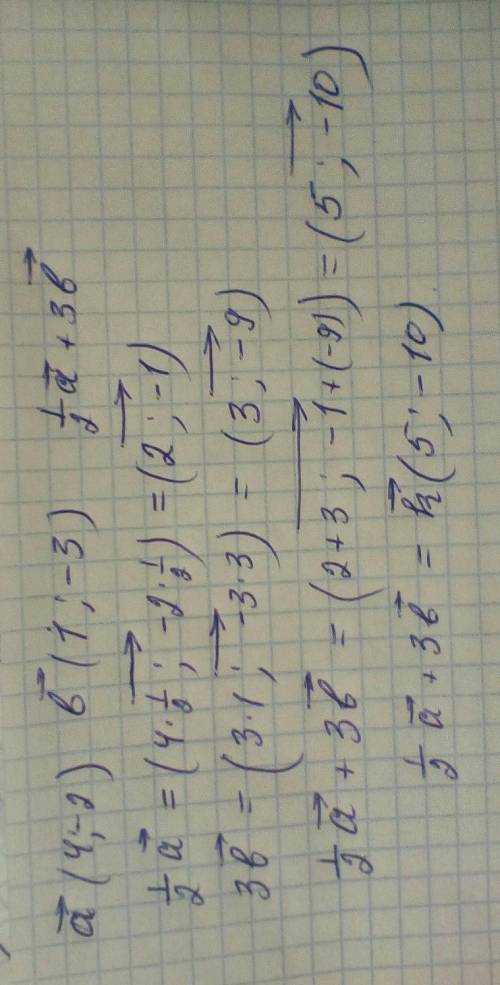 a⃗ (4;-2) в⃗ (1;-3) ½a⃗ + 3в⃗
½a⃗ = (4·½; -2·½) = (2; -1)
3в⃗ = (3·1; -3·3) = (3; -9)
½a⃗ + 3в⃗ = (2+3; -1+(-9)) = (5; -10)
½a⃗ + 3в⃗ = k⃗ (5; -10)